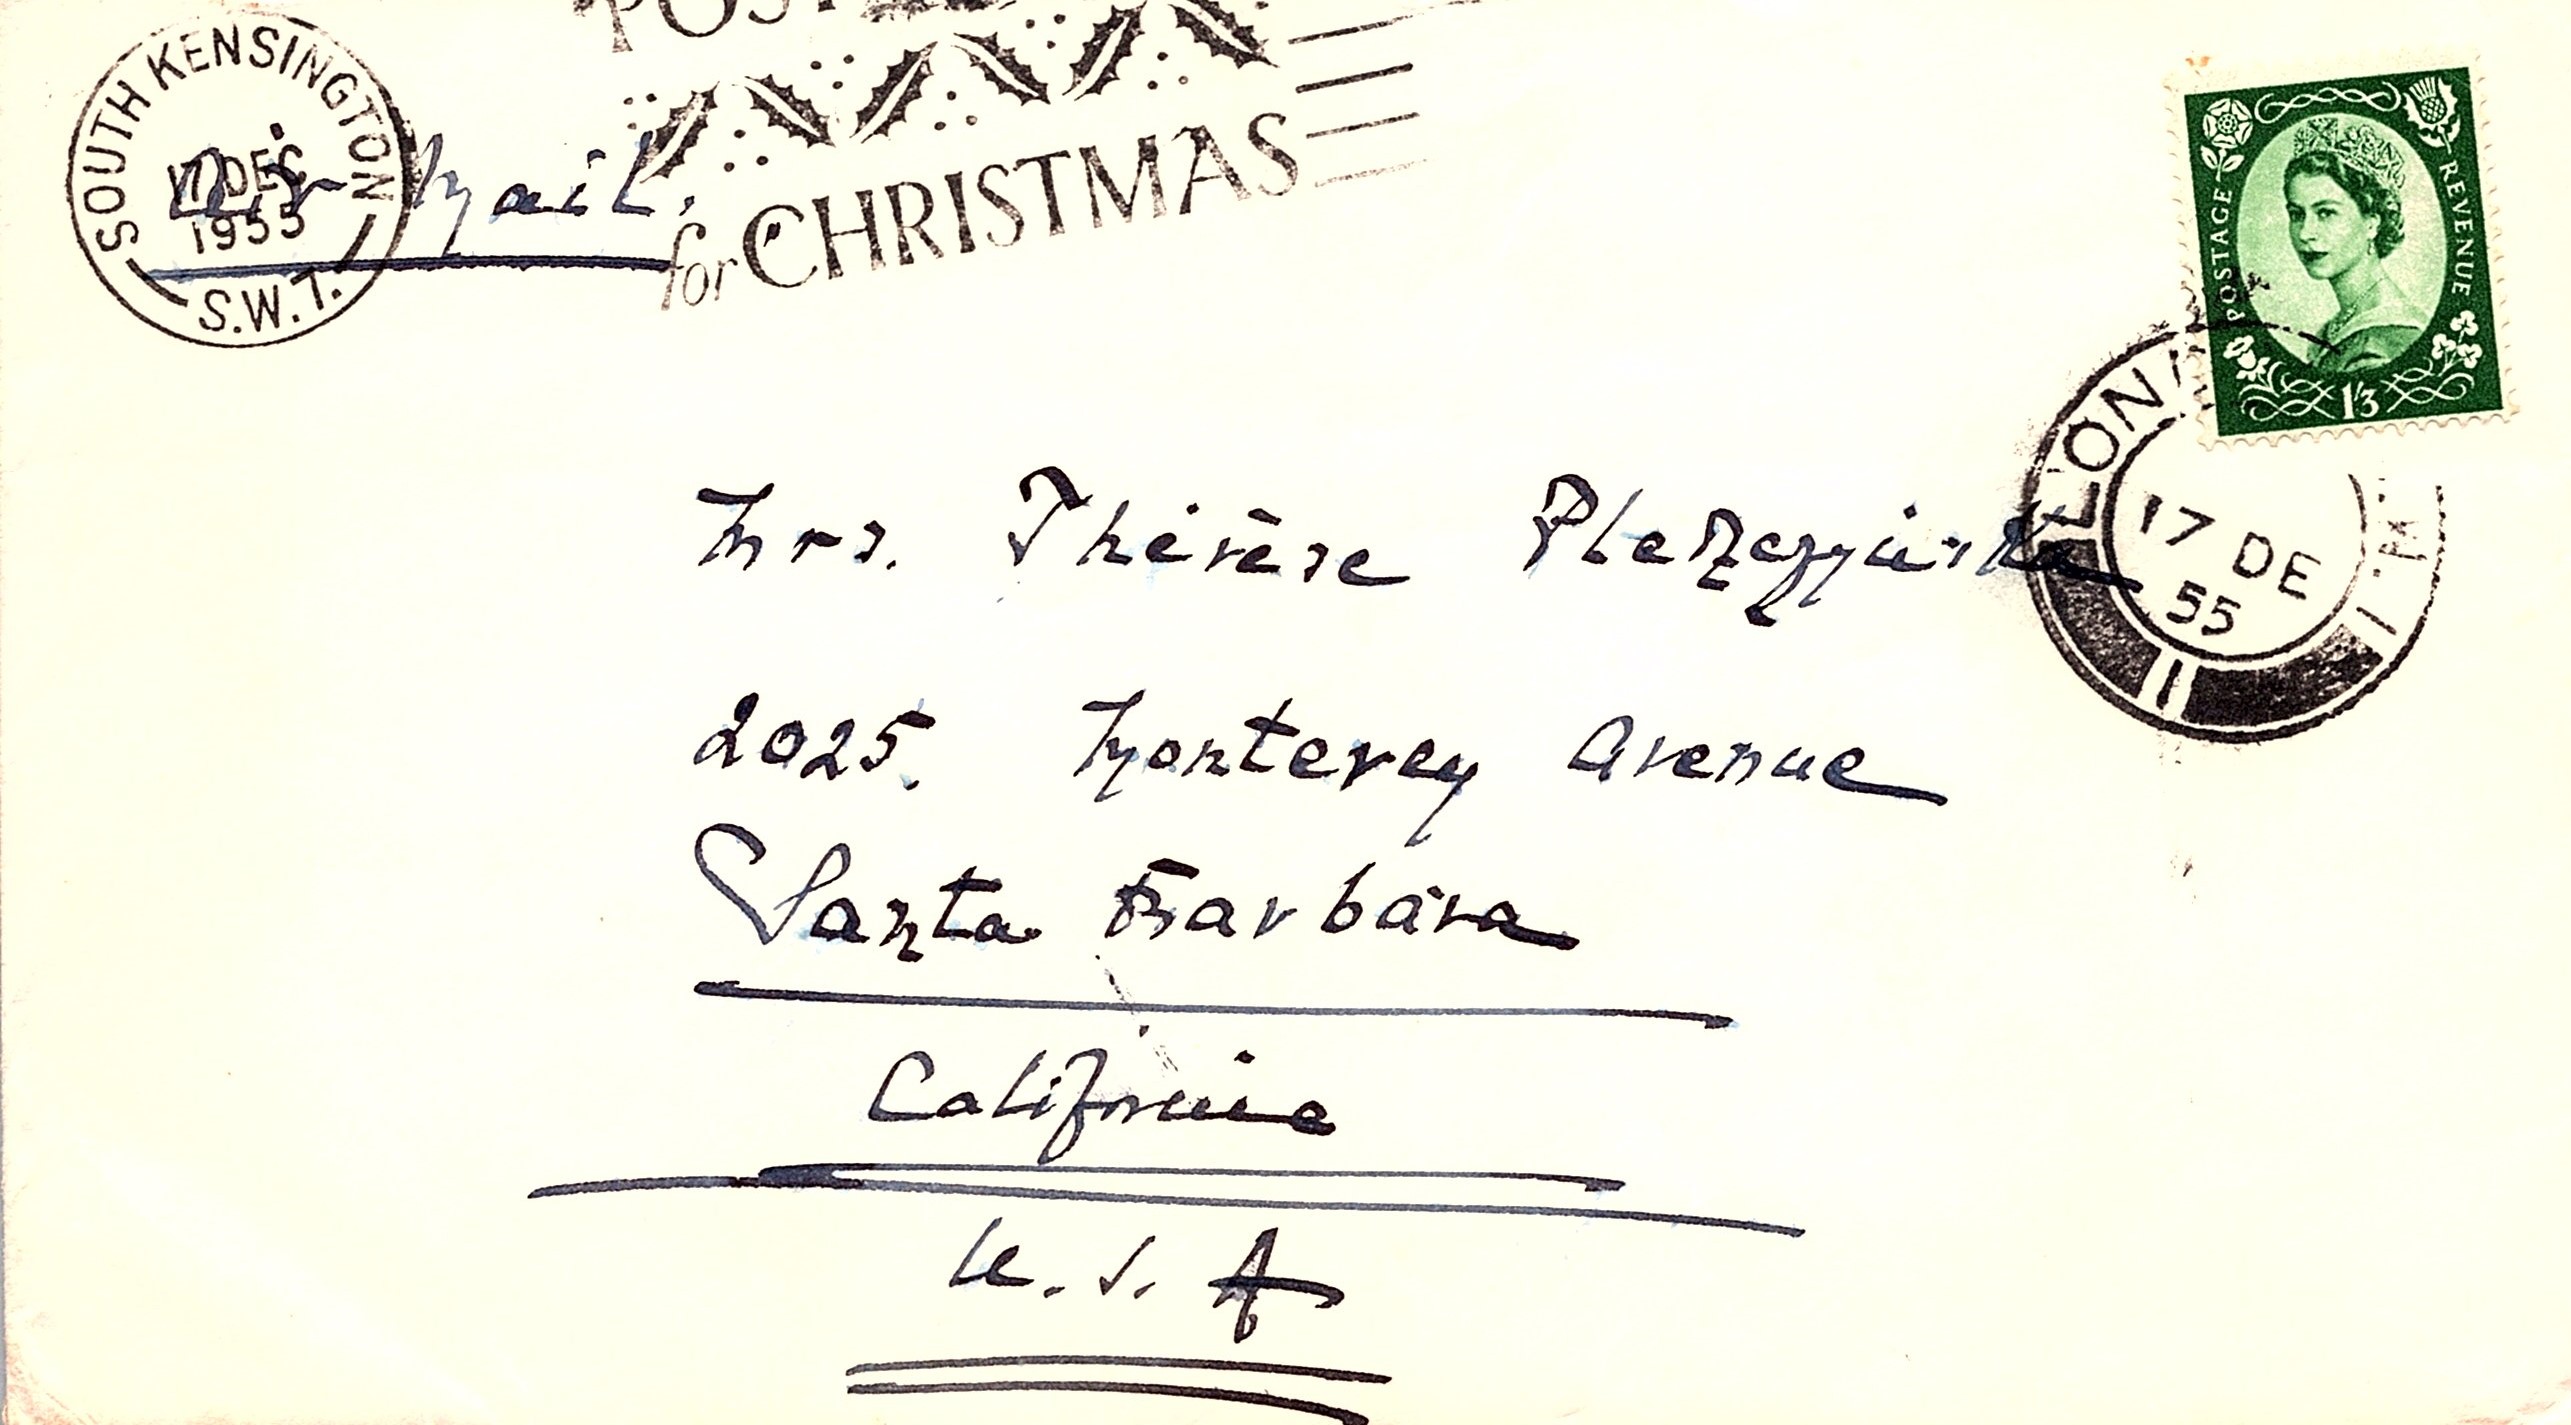 SOUTH KENSINGTON
17 DEC
1955
S.W.7.
POST
for CHRISTMAS
Air Mail.
POSTAGE
REVENUE
1/3
17 DE
55
1
Mrs. Thérèse
2025. Monterey Avenue
Santa Barbara
California
U.S.A